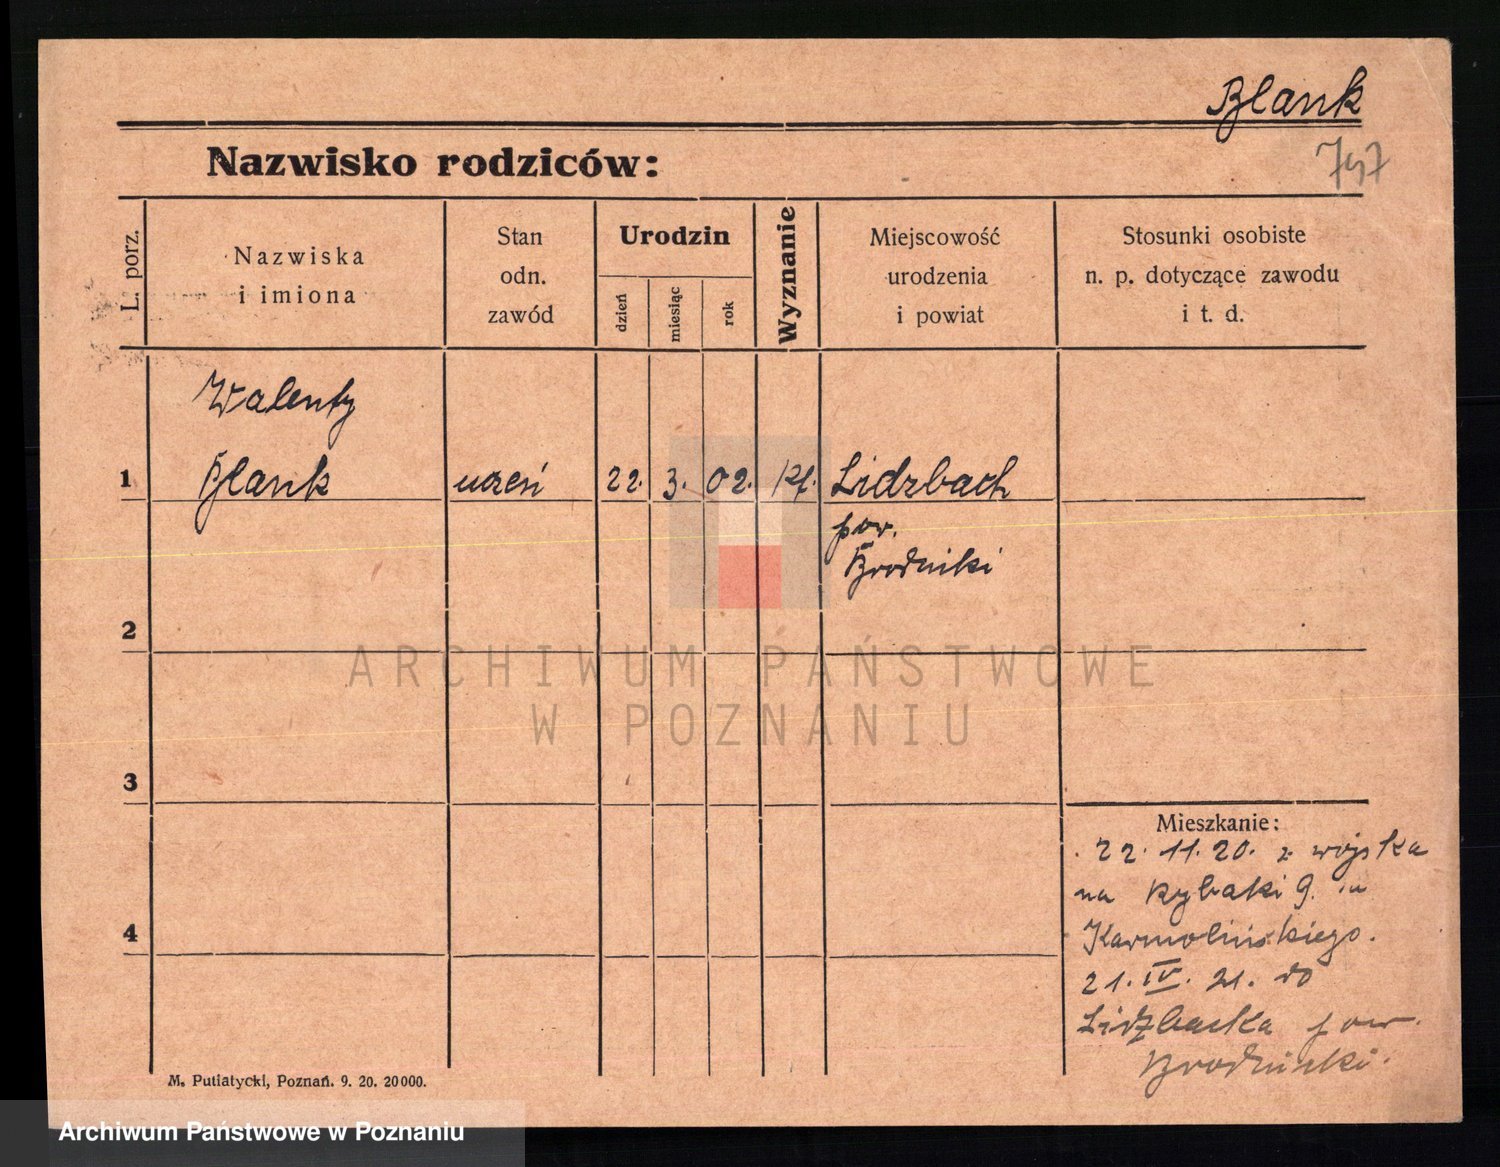 Blank
Nazwisko rodziców:
747
L. porz.
Nazwiska
i imiona
Stan
odn.
zawód
Urodzin
dzień
miesiąc
rok
Wyznanie
Miejscowość
urodzenia
i powiat
Stosunki osobiste
n. p. dotyczące zawodu
i t. d.
Walenty
1 Blank uczeń 22. 3. 02. Kf. Lidzbach
pow.
Brodniki
2
ARCHIWUM PAŃSTWOWE
W POZNANIU
3
Mieszkanie:
22. 11. 20. z wojska
na Rybaki 9. u
4
Karmolińskiego.
21. IV. 21. do
Lidzbarka pow.
Brodniki.
M. Putiatycki, Poznań. 9. 20. 20000.
Archiwum Państwowe w Poznaniu